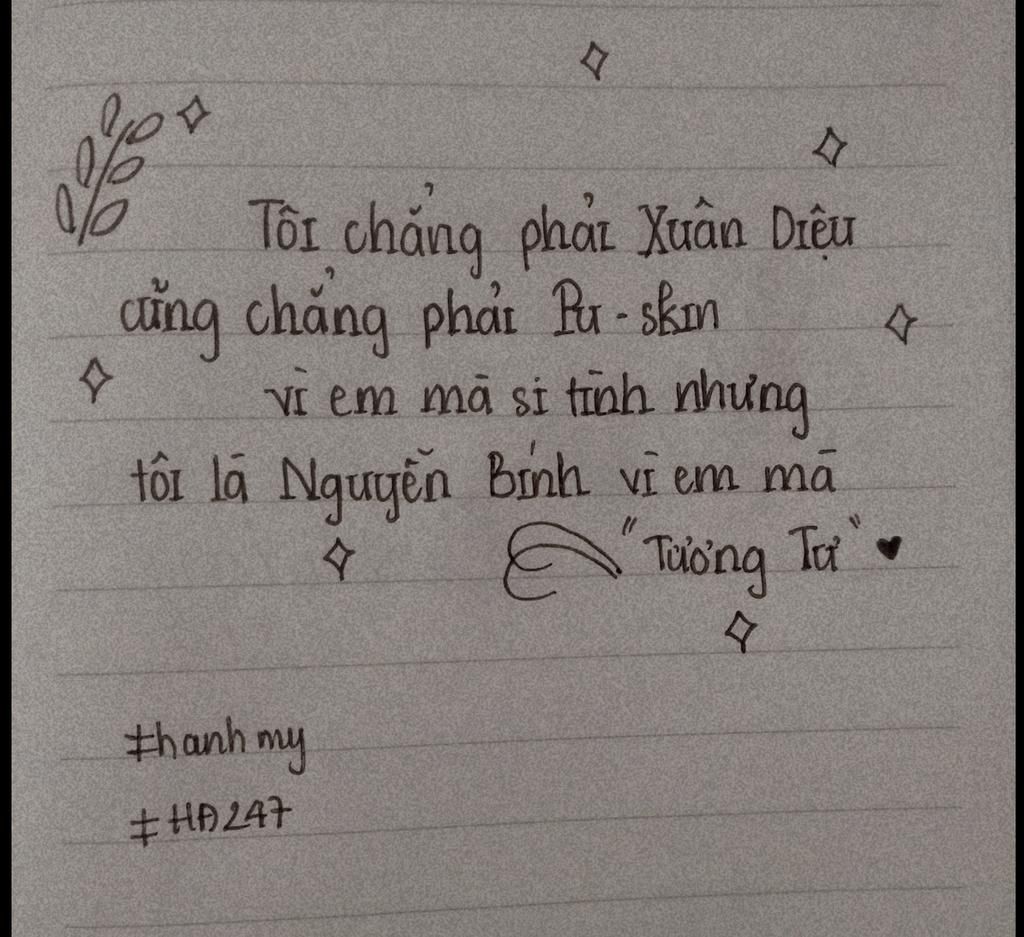 Tôi chẳng phải Xuân Diệu
cũng chẳng phải Pu-skin
vì em mà si tình nhưng
tôi là Nguyễn Bính vì em mà
"Tương Tư" ♥
#hanhmy
#HĐ247